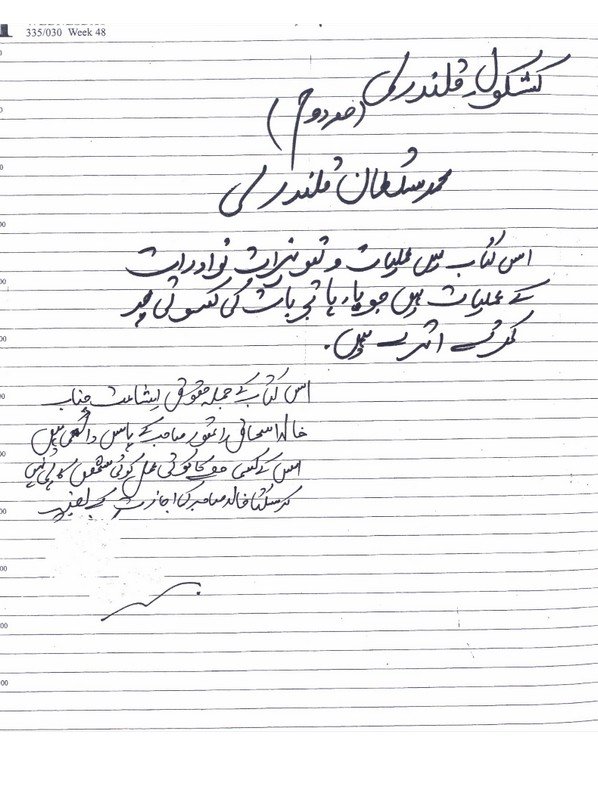 335/030 Week 48
کشکول قلندری
(حصہ دوم)
محمد سلطان قلندری
اس کتاب میں عملیات و تعویذات نوادرات
کے عملیات ہیں جو بارہا تجربات کی کسوٹی پر
کھرے اترے ہیں۔
اس کتاب کے جملہ حقوق اشاعت جناب
خالد اسحاق راٹھور صاحب کے پاس دائمی ہیں
اس کے کسی کا کوئی عمل کوئی شخص کاپی نہیں
کر سکتا خالد صاحب کی اجازت کے بغیر